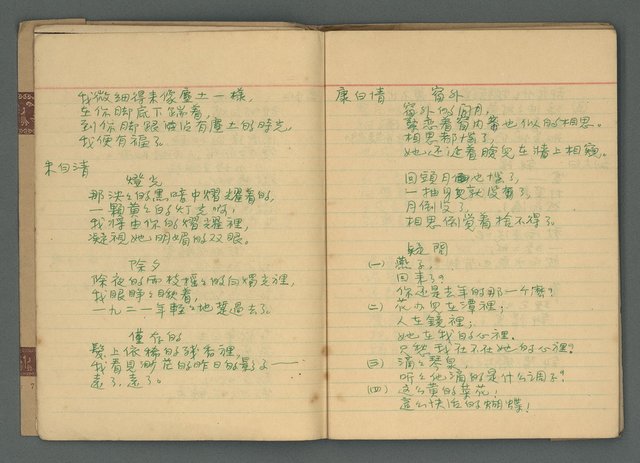 我微細得来像塵土一樣，
在你脚底下踹着，
到你脚跟沾有塵土的時光，
我便有福了。
朱自清
燈光
那泱泱的黑暗中熠耀着的，
一顆黃黃的灯光呵，
我將由你的熠耀裡，
凝視她明媚的双眼。
除夕
除夜的兩枝摇摇的白燭光裡，
我眼睜睜瞅着，
一九二一年輕輕地踅過去了。
僅存的
髮上依稀的殘香裡，
我看見渺茫的昨日的影子——
遠了，遠了。
康白情
窗外
窗外的闲月，
緊恋着窗内蜜也似的相思。
相思都惱了，
她还涎着臉兒在墙上相窺。
回頭月也惱了，
一抽身兒就沒了。
月倒沒了，
相思倒覺着捨不得了。
疑問
(一) 燕子，
回来了？
你还是去年的那一个麼？
(二) 花片兒在潭裡；
人在鏡裡；
她在我的心裡。
只愁我在不在她的心裡？
(三) 滴滴琴泉，
听听他滴的是什么調不？
(四) 这么黄的菜花！
這么快活的蝴蝶！